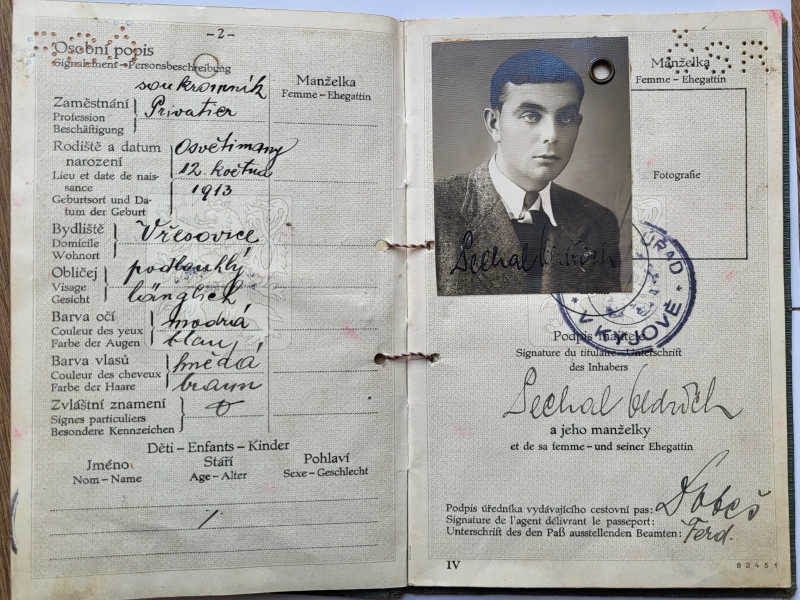 - 2 -
Osobní popis
Signalement - Personsbeschreibung
Manželka
Femme - Ehegattin
Zaměstnání
Profession
Beschäftigung
soukromník
Privatier
Rodiště a datum
narození
Lieu et date de nais-
sance
Geburtsort und Da-
tum der Geburt
Osvětimany
12. května
1913
Bydliště
Domicile
Wohnort
Vřesovice
Obličej
Visage
Gesicht
podlouhlý
länglich
Barva očí
Couleur des yeux
Farbe der Augen
modrá
blau
Barva vlasů
Couleur des cheveux
Farbe der Haare
hnědá
braun
Zvláštní znamení
Signes particuliers
Besondere Kennzeichen
Děti - Enfants - Kinder
Jméno
Nom - Name
Staří
Age - Alter
Pohlaví
Sexe - Geschlecht
Manželka
Femme - Ehegattin
ČSR
Fotografie
Sechal Oldřich
ÚŘAD
V KYJOVĚ
Podpis majitele
Signature du titulaire - Unterschrift
des Inhabers
Sechal Oldřich
a jeho manželky
et de sa femme - und seiner Ehegattin
Podpis úředníka vydávajícího cestovní pas:
Signature de l'agent délivrant le passeport:
Unterschrift des den Paß ausstellenden Beamten:
Dobeš
Ferd.
IV
82451